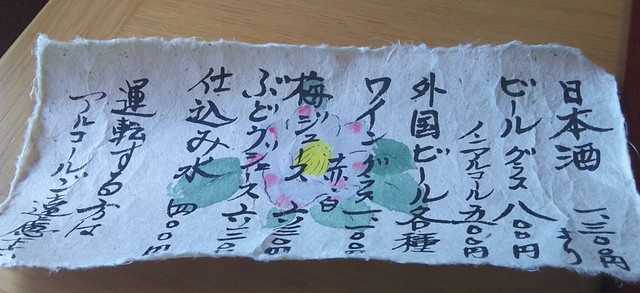 日本酒 一、三〇〇円より
ビールグラス 八〇〇円
ノンアルコール 五〇〇円
外国ビール各種
ワイングラス 一、二〇〇円
赤・白
梅ジュース 六三〇円
ぶどうジュース 六三〇円
仕込み水 四〇〇円
運転する方は
アルコールご遠慮